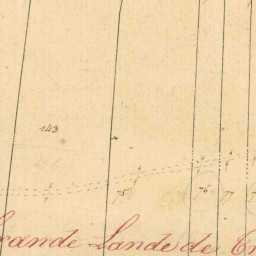 143
75
76
77
Grande Lande de